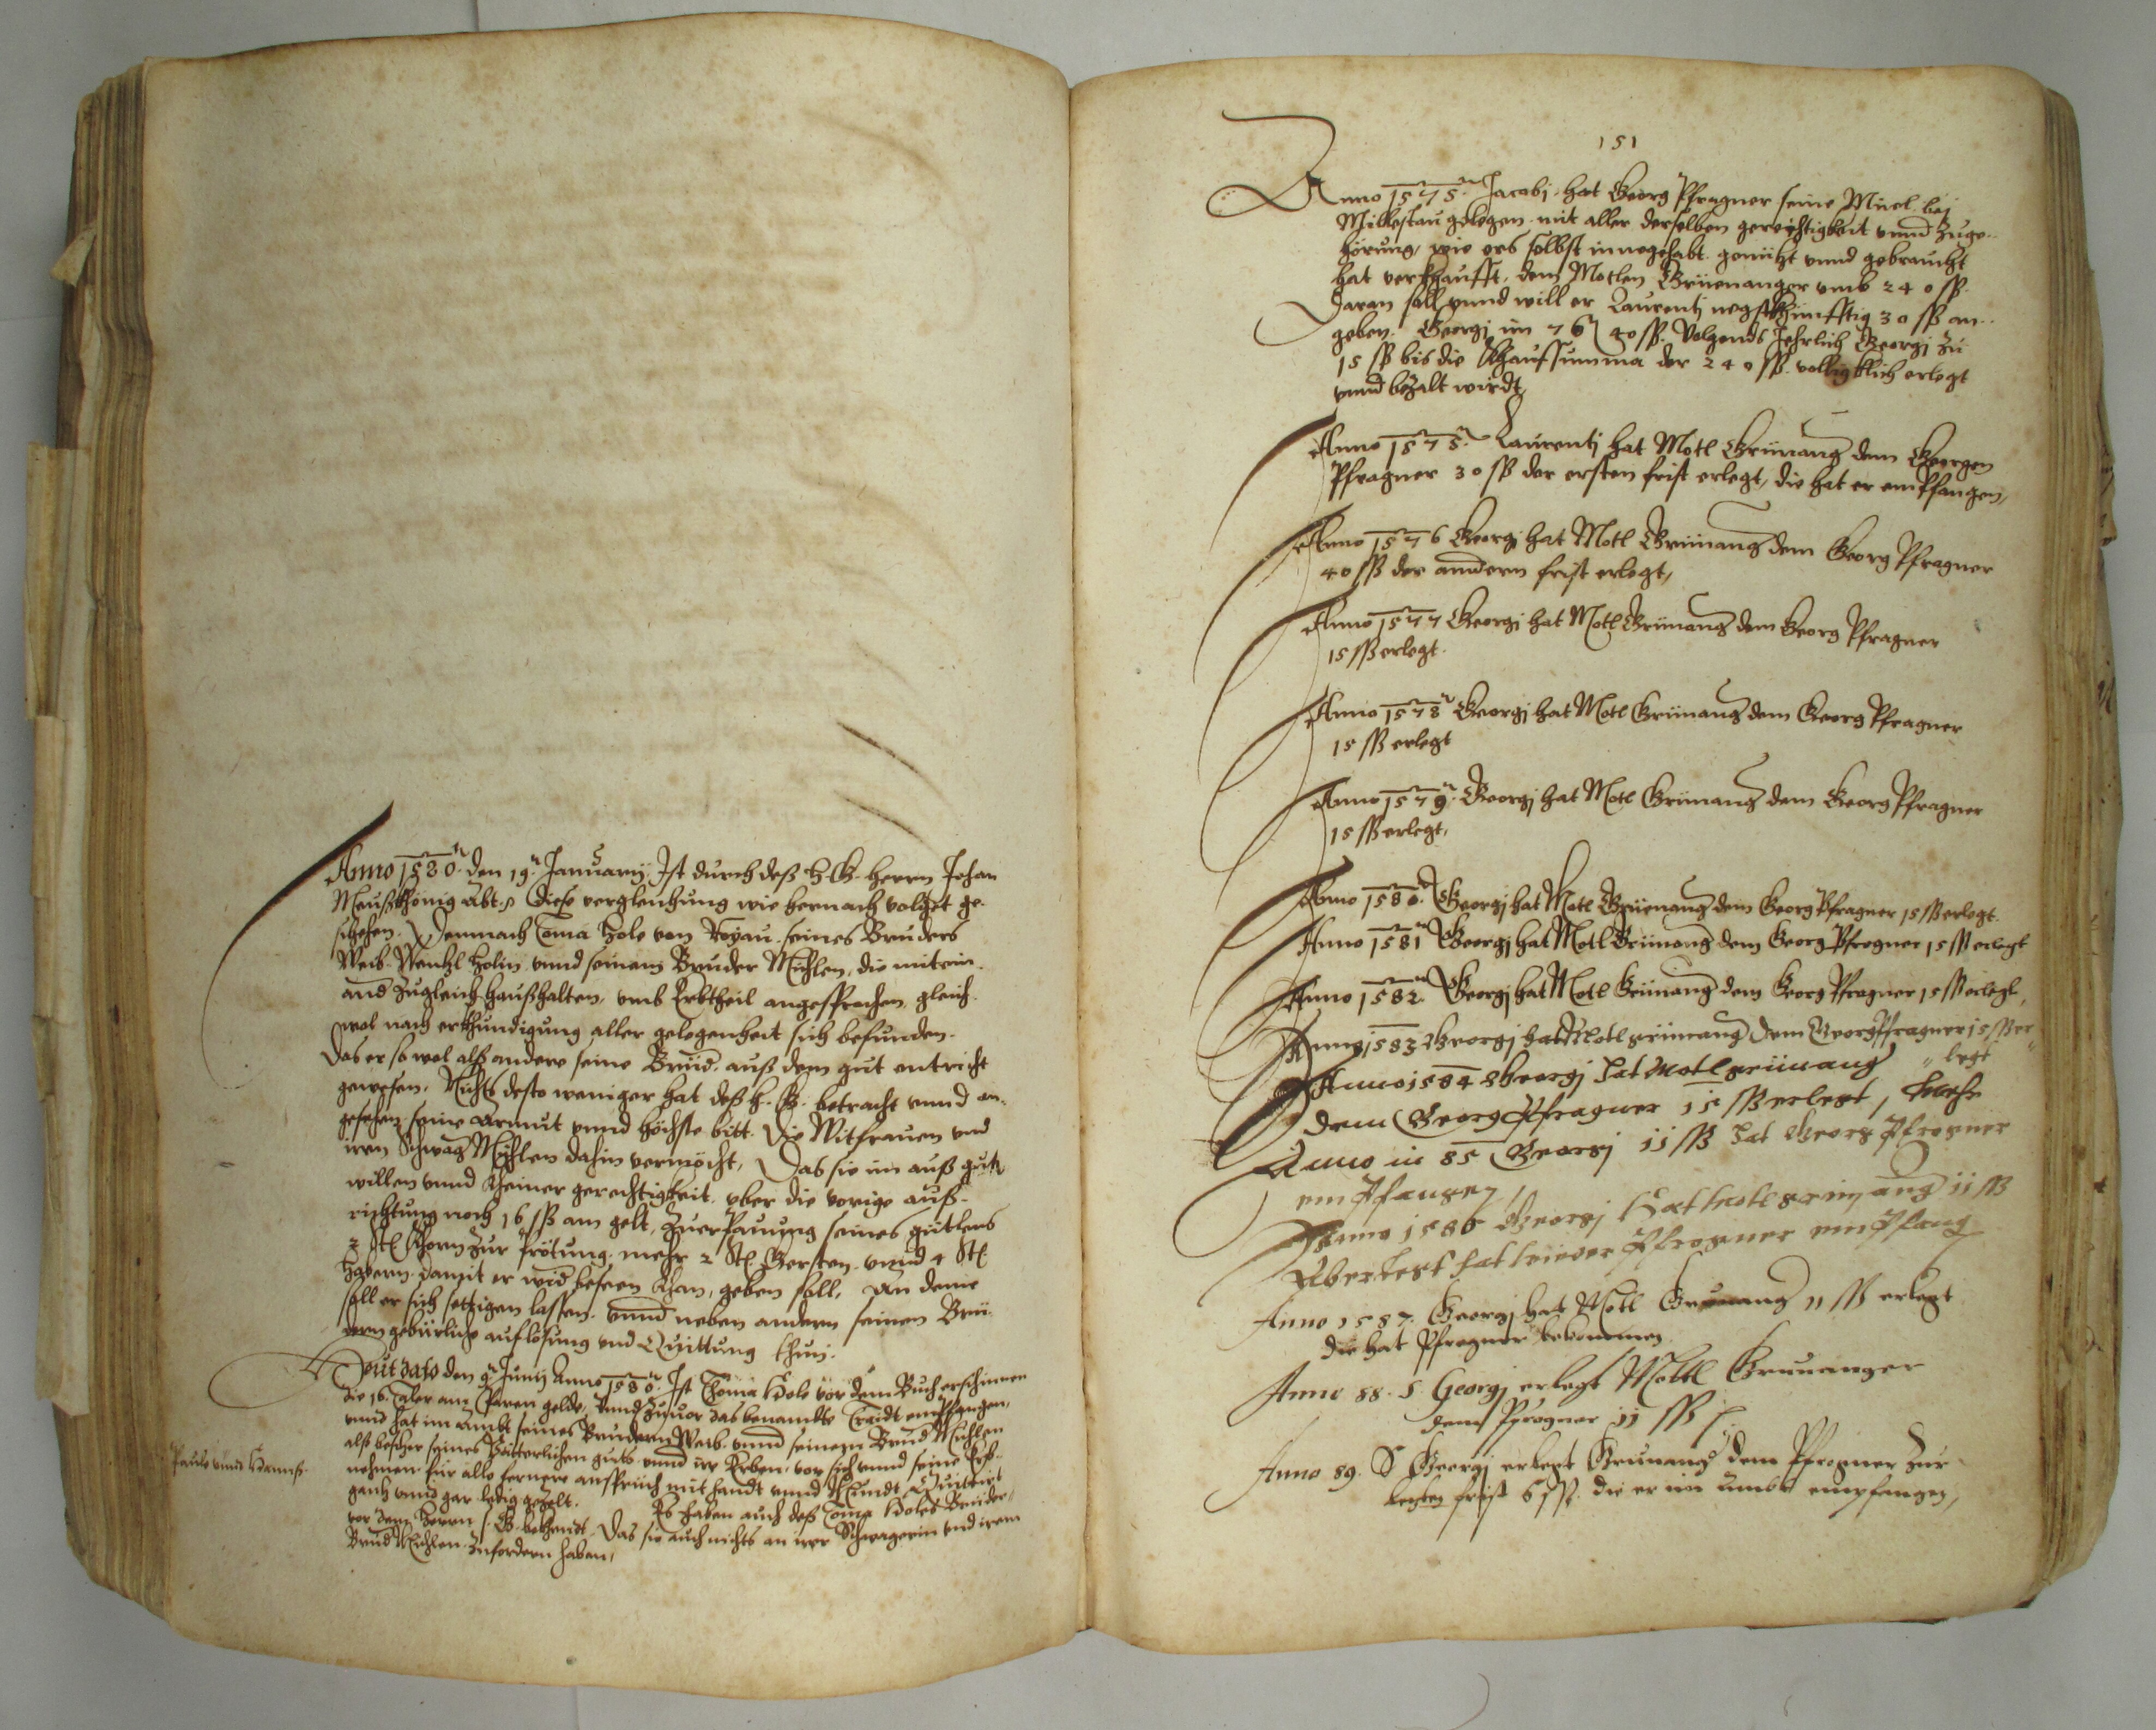 Anno 1580. den 19. Januarij Ist durch deß H. G. herrn Johan
Meuskhönig Abt. diese vergleichung wie hernach volget ge-
schehen. Demnach Toma Hole von seines Bruders
Weib. Wentzl Holin vnnd seinem Bruder Michlen, die mitein-
and zugleich haußhalten, vmb Erbtheil angesprochen, gleich-
wol nach erkhundigung aller gelegenheit sich befunden.
Das er so wol alß andere seine Brüd. auß dem gut entricht
gewesen, Nichts desto weniger hat deß h. G. betracht vnnd an-
gesehen seine Armut vnnd höchste bitt. die Witfrauen vnd
iren Schwag Michlen dahin vermöcht, Das sie im auß gutt
willen vnnd kheiner gerechtigkeit, vber die vorige auß-
richtung noch 16 ß am gelt, Zuerpauung seines güttlens
2 St. Khorn zur frötung, mehr 2 St. Gersten. vnnd 4 St.
habern. damit er wid beseen khan, geben soll, An deme
soll er sich settigen lassen. vnnd neben andern seinen Brü-
dern gebürliche auflösung vnd Quittung thun.
Heut dato den 9. Junij Anno 1580. Ist Thoma Hole vor dem Buch erschinen
die 16. Taler am Paren gelde, Vnnd zuuor das benambte Traidt empfangen,
vnnd hat im Ambt seines Brudern Weib. vnnd seinem Brud Michlen
alß besitzer seines Vätterlichen guts vnnd irer Erben, vor sich vnnd seine Erb-
nehmen für alle fernere anspruch mit handt vnnd Mundt Quittirt
Paul vnnd Hannß.
gantz vnnd gar ledig gezelt. Es haben auch deß Toma Holes Brüder,
vor dem herrn G. bekhendt. Das sie auch nichts an irer Schwagerin vnd irem
Brud Michlen zufordern haben,
151
Anno 1575. Jacobj. hat Georg Pfragner seine Müel bej
Millestau gelegen. mit aller derselben gerechtigkeit vnnd Zuge-
hörung, wie ers selbst innegehabt. genützt vnnd gebraucht
hat verkhaufft. dem Motlen Grüenanger vmb 240 ß.
Daran soll vnnd will er Laurentj negstkhünfftig 30 ß an-
geben. Georgj im 76 40 ß. Volgends Jehrlich Georgj zu
15 ß bis die Khaufsumma der 240 ß. völligklich erlegt
vnnd bezalt wirdt,
Anno 1575. Laurentj hat Motl Grünang dem Georgen
Pfragner 30 ß der ersten frist erlegt, die hat er empfangen,
Anno 1576 Georgj hat Motl Grünang dem Georg Pfragner
40 ß der andern frist erlegt,
Anno 1577 Georgj hat Motl Grünang dem Georg Pfragner
15 ß erlegt.
Anno 1578 Georgj hat Motl Grünang dem Georg Pfragner
15 ß erlegt
Anno 1579. Georgj hat Motl Grünang dem Georg Pfragner
15 ß erlegt,
Anno 1580. Georgj hat Motl Grüenang dem Georg Pfragner 15 ß erlegt.
Anno 1581 Georgj hat Motl Grünang dem Georg Pfragner 15 ß erlegt
Anno 1582. Georgj hat Motl Grünang dem Georg Pfragner 15 ß erlegt,
Anno 1583 Georgj hat Motl grünang dem Georg Pfragner 15 ß er-
legt
Anno 1584 Georgj hat Motl grünang
dem Georg Pfragner 15 ß erlegt, Mehr
Anno im 85 Georgj 11 ß hat Georg Pfragner
empfangen,
Anno 1586 Georgj hat Motl grünang 11 ß
erlegt hat Pfragner empfang
Anno 1587. Georgj hat Motl Grünang 11 ß erlegt
die hat Pfragner bekommen
Anno 88. S. Georgj erlegt Mottl Grunanger
dem Pfragner 11 ß
Anno 89. S Georgj erlegt Grünang dem Pfragner zur
letzten frist 6 ß. die er im Ambt empfangen,